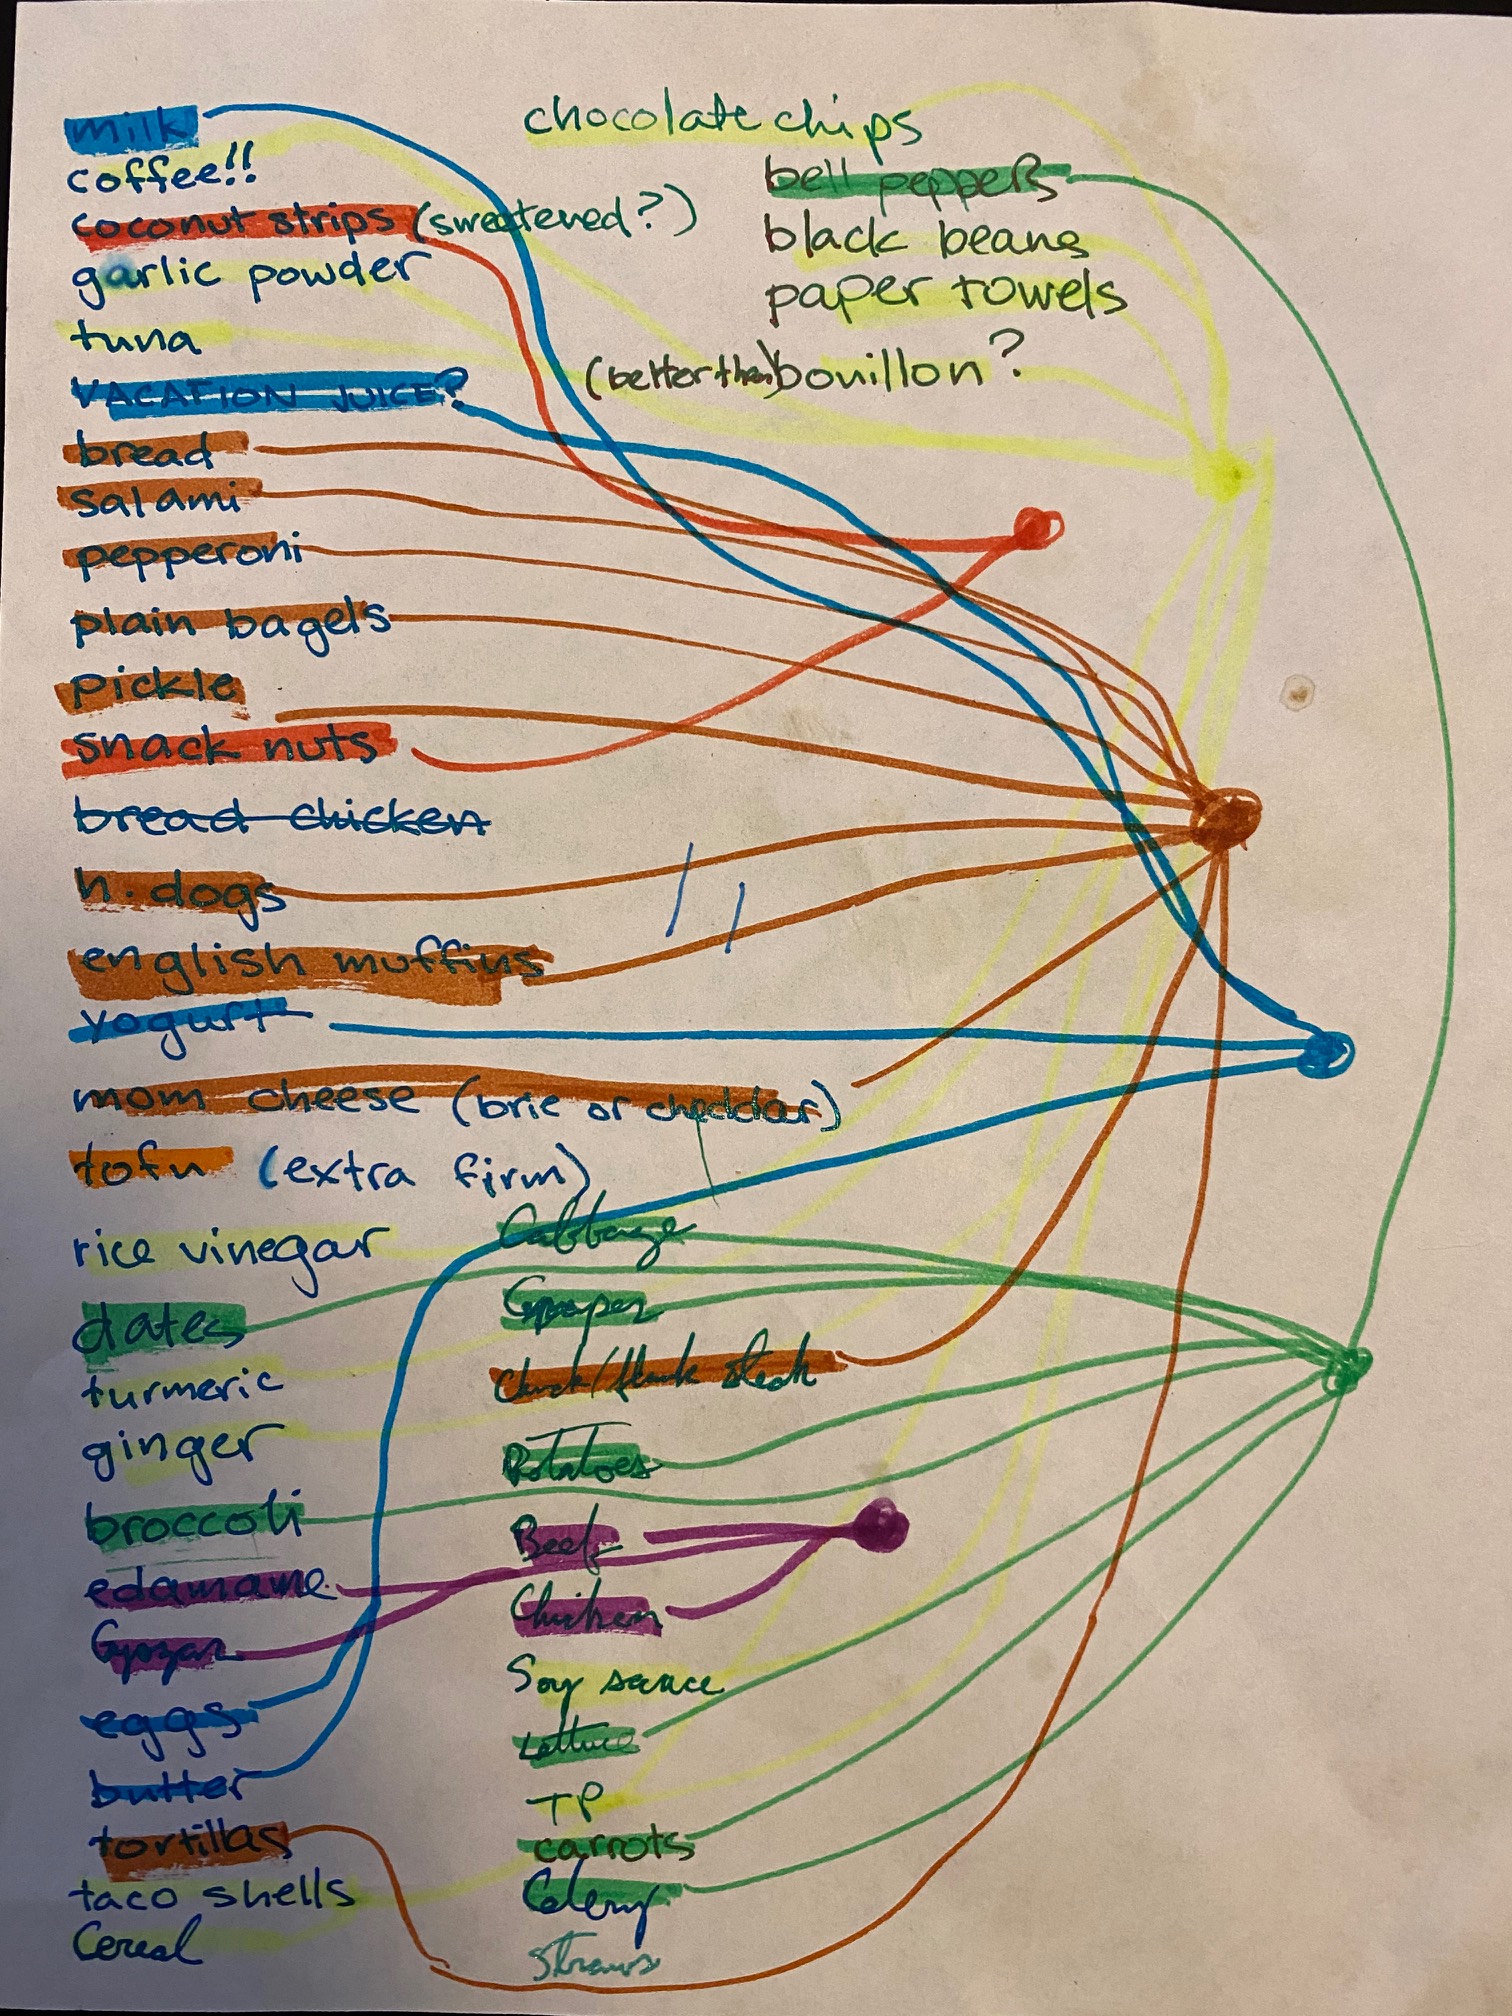 milk
coffee!!
coconut strips (sweetened?)
garlic powder
tuna
VACATION JUICE?
bread
salami
pepperoni
plain bagels
pickle
snack nuts
bread chicken
h. dogs
english muffins
yogurt
mom cheese (brie or cheddar)
tofu (extra firm)
rice vinegar
dates
turmeric
ginger
broccoli
edamame
Gyozas
eggs
butter
tortillas
taco shells
Cereal
chocolate chips
bell peppers
black beans
paper towels
(better than) bouillon?
Cabbage
steak
Potatoes
Beef
Chicken
Soy sauce
Lettuce
TP
carrots
Celery
Straws